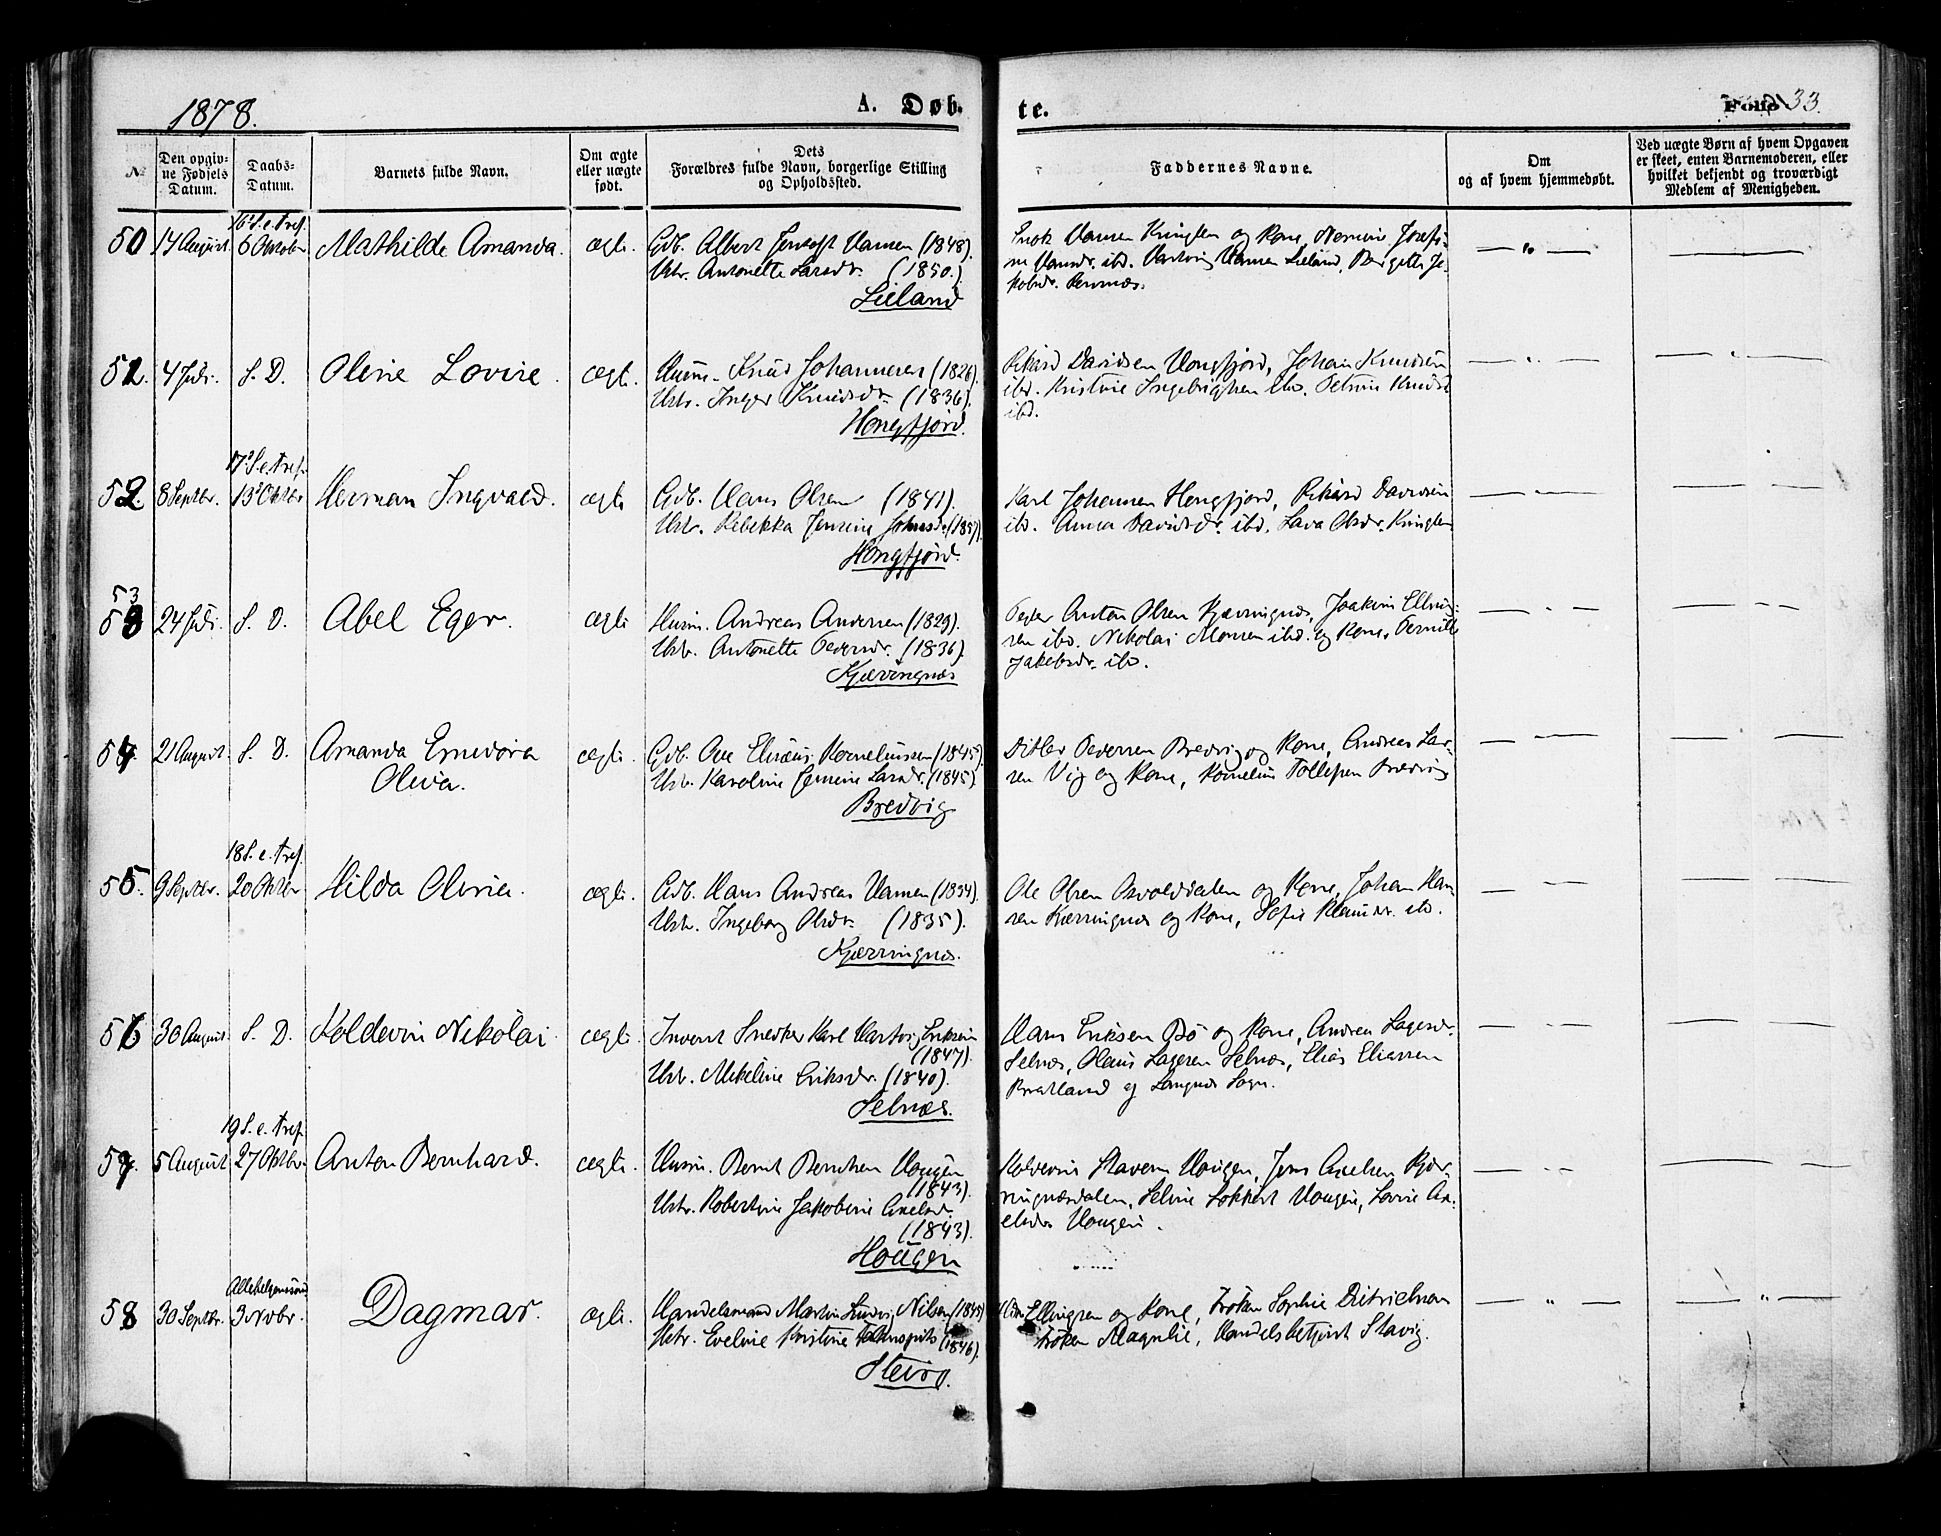 1878.
A. Døb-
te.
Folio 33.
№
Den opgiv-
ne Fødsels
Datum.
Daabs-
Datum.
Barnets fulde Navn.
Om ægte
eller uægte
født.
Dets
Forældres fulde Navn, borgerlige Stilling
og Opholdssted.
Faddernes Navne.
Om
og af hvem hjemmedøbt.
Ved uægte Børn af hvem Opgaven
er skeet, enten Barnemoderen, eller
hvilket bekjendt og troværdigt
Medlem af Menigheden.
50 14 August 16 S. e. Tref. 6 Oktober Mathilde Amanda. ægte.
Gdb. Albert Hansen (1848).
Hstr. Antonette Larsdr. (1850.)
Lieland
Enok Hansen og Kone, Josefi-
ne Hansdr. ibd. Hartvig Hansen Lieland, Bergitte Ja-
kobsdr.
51. 4 Juli. S. D. Oline Lovise. ægte.
Husm. Knud Johannesen (1826).
Hstr. Inger Knudsdr. (1836).
Hongfjord.
Rikard Davidsen Hongfjord, Johan Knudsen
ibd. Kristine Ingebrigtsen ibd. Petrine Knudsd.
ibd.
52. 8 Septbr. 17 S. e. Tref. 13 Oktbr. Herman Ingvald. ægte
Gdb. Hans Olsen (1841).
Hstr. Rebekka Jensine Johnsdr. (1837).
Hongfjord.
Karl Johansen Hongfjord, Rikard Davidsen
ibd. Anna Davidsdr. ibd. Lava Olsdr.
53
53 24 Juli. S. D. Abel Eger. ægte
Husm. Andreas Andersen (1829).
Hstr. Antonette Pedersdr. (1836).
Kjæringnæs
Peder Anton Olsen Kjærringnæs, Joakim Elling-
sen ibd. Nikolai Monsen ibd. og Kone, Pernille
Jakobsdr. ibd.
54 21 August. S. D. Amanda
Oliva. ægte.
Gdb. Ove Elisæus Kornelius­sen (1845).
Hstr. Karoline Larsdr. (1845).
Bredvig
Ditlev Pedersen Bredvig og Kone, Andreas Lar-
sen Vig og Kone, Kornelius Tollefsen Bredvig
55. 9 Septbr. 18 S. e. Tref. 20 Oktbr Hilda Olivia. ægte.
Gdb. Hans Andreas Hansen (1834).
Hstr. Ingeborg Olsdr. (1835).
Kjærringnæs.
Ole Olsen og Kone, Johan Han-
sen Kjærringnæs og Kone, Sofie ibd.
56 30 August. S. D. Koldevin Nikolai. ægte.
Inderst Snedker Karl Hartvig Eriksen
(1847).
Hstr. Mekeline Eriksdr. (1840).
Selnæs.
Hans Eriksen Bø og Kone, Andrea Lagesdr.
Selnæs, Olaus Lagesen Selnæs, Elias Eliassen
Bratland af Sogn.
57. 5 August 19 S. e. Tref. 27 Oktbr. Anton Bernhard. ægte.
Husm. Bernt Berntsen Hougen
(1843).
Hstr. Robertine Jakobine Axelsd.
(1843).
Hougen
Koldevin Hougen, Jens Axelsen Kjær-
ringnæsdalen, Hougen, Lovise Ax-
elsdr Hougen.
58 30 Septbr. 3 Novbr. Dagmar. ægte.
Handelsmand Martin Ludvig Nilsen (1845)
Hstr. Eveline Kristine (1846).
Steiro.
Ellingsen og Kone, Frøken Sophie Ditrichson
Frøken Magelie, Handelsbetjent Slavig.